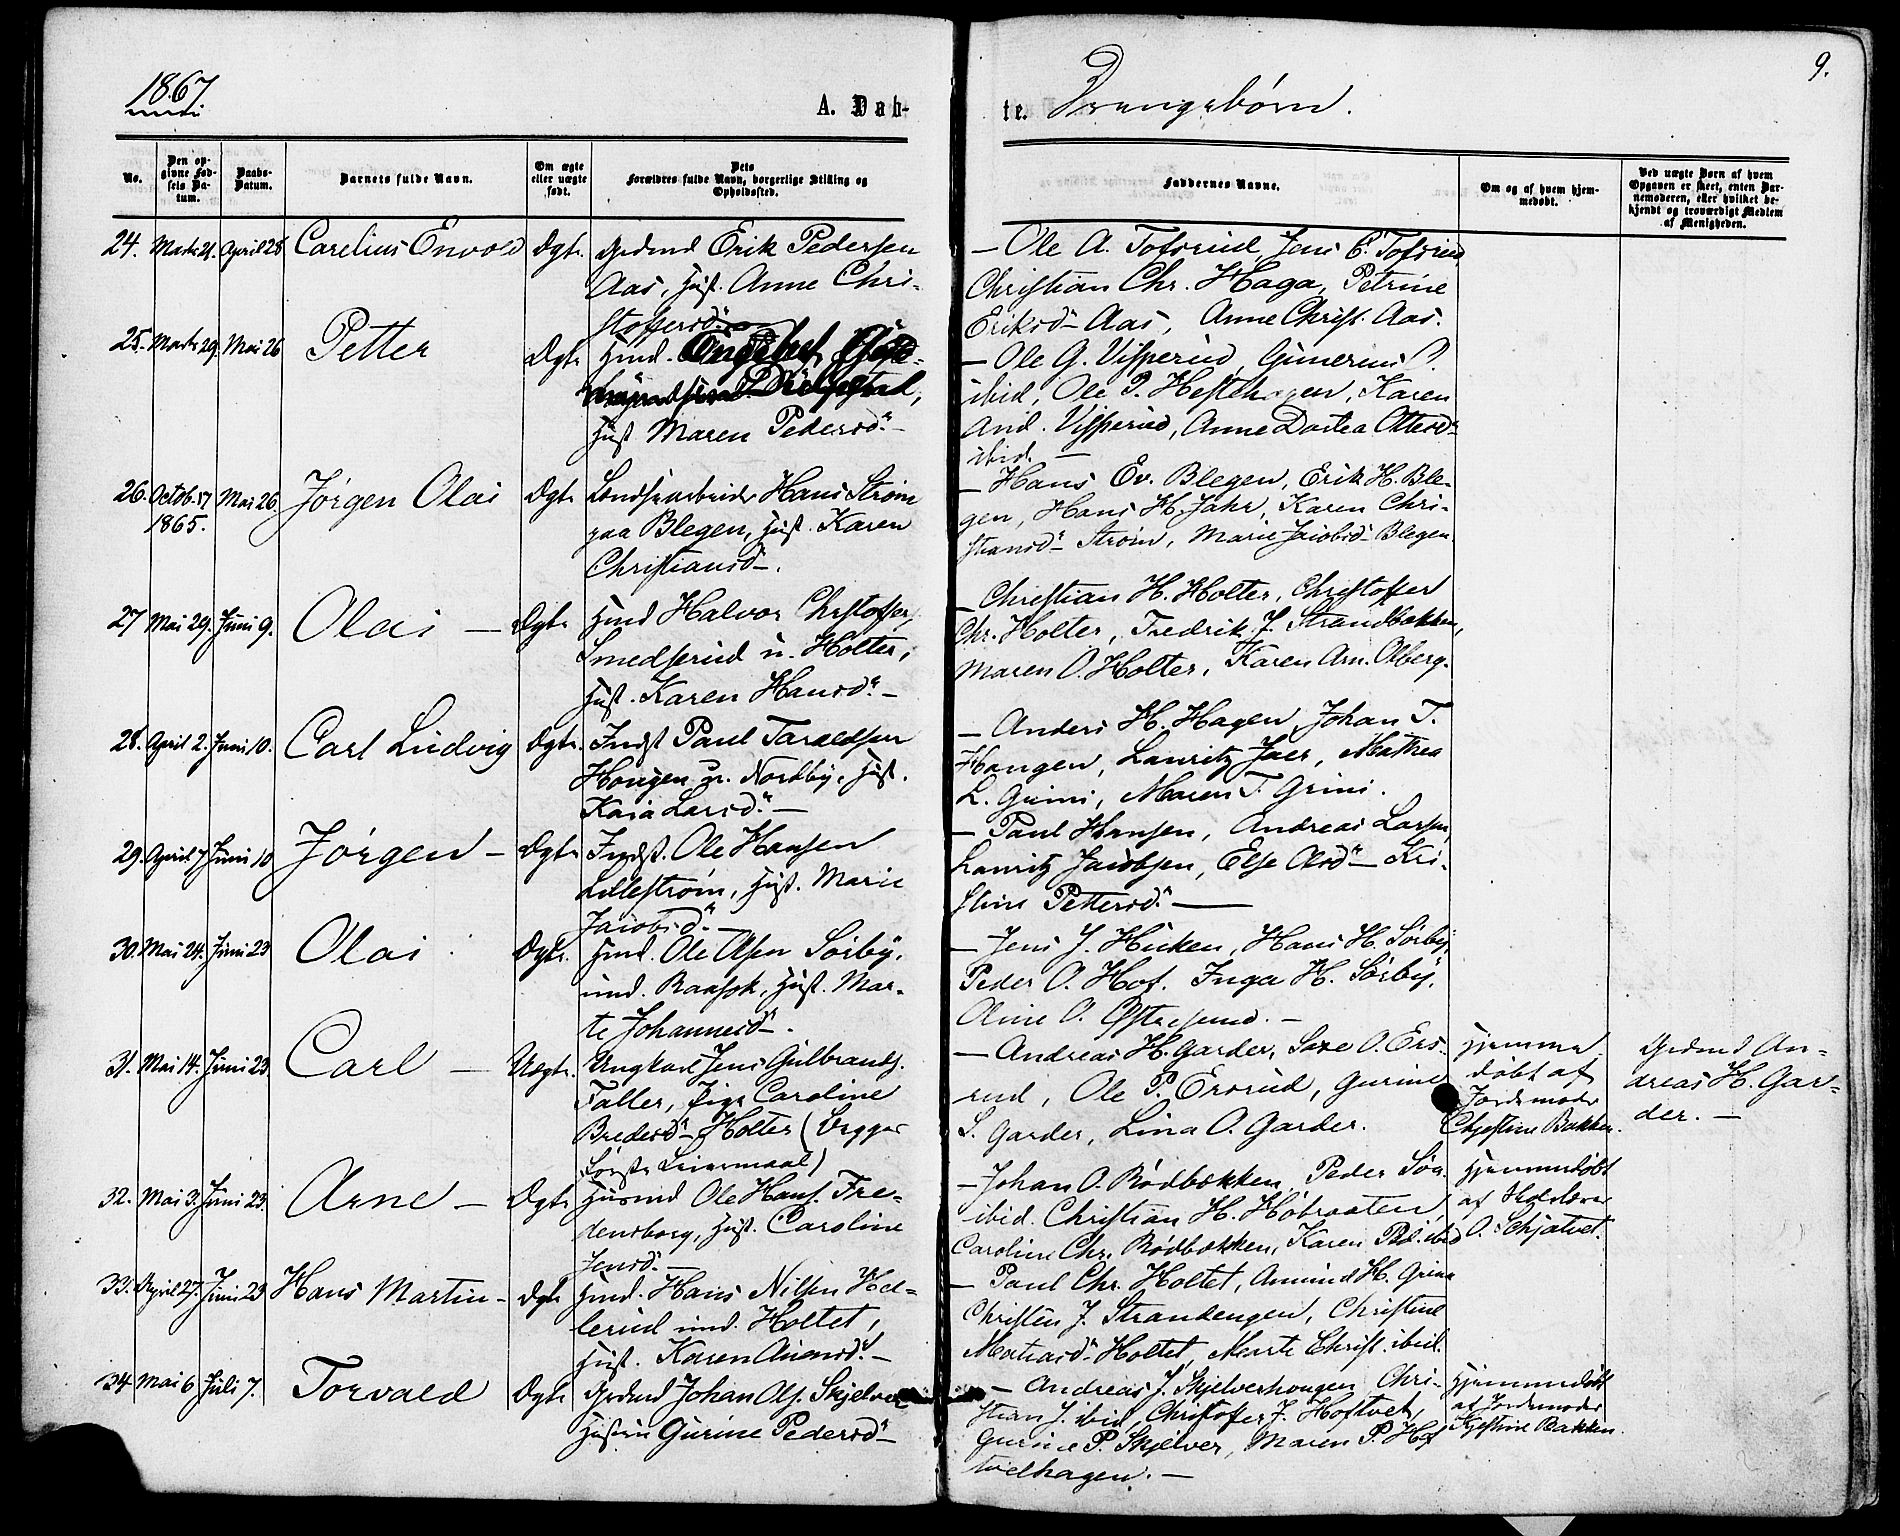 1867
A. Døb-
te. Drengebørn.
9.
No.
Den op-
givne Fød-
sels Da-
tum.
Daabs-
Datum.
Barnets fulde Navn.
Om ægte
eller uægte
født.
Dets
Forældres fulde Navn, borgerlige Stilling og
Opholdssted.
Faddernes Navne.
Om og af hvem hjem-
medøbt.
Ved uægte Børn af hvem
Opgaven er skeet, enten Bar-
nemoderen, eller hvilket be-
kjendt og troværdigt Medlem
af Menigheden.
24. Marts 21. April 28 Carelius Envold Ægte Grdmd Erik Pedersen
Aas, Hust. Anne Chri-
stoffersd.
— Ole A. Tofsrud, Jens E. Tofsrud
Christian Chr. Haga, Petrine
Eriksd. Aas, Anne Christ. Aas.
25. Marts 29. Mai 26 Petter Ægte Hmd.
Hust Maren Pedersd. —
— Ole G. Visperud, Gunerius
ibid, Ole P. Heftehagen, Karen
And. Visperud, Anne Dortea Ottersd.
ibid. —
26. Octob. 17 1865. Mai 26. Jørgen Olai Ægte Landsarbeider Hans Strøm
paa Blegen, Hust. Karen
Christiansd. —
— Hans Ev. Blegen, Erik H. Ble-
gen, Hans H. Jahr, Karen Chri-
stiansd. Strøm, Marie Jacobsd. Blegen.
27 Mai 29. Juni 9. Olai — Ægte Hmd Halvor Christoffer.
Smedserud u. Holter,
Hust. Karen Hansd. —
— Christian H. Holter, Christoffer
Chr. Holter, Fredrik J. Strandbakken,
Maren O. Holter, Karen Am. Olberg.
28. April 2. Juni 10. Carl Ludvig Ægte. Indst Paul Taraldsen
Hougen u. Nordby, Hust.
Kaia Larsd. —
— Anders H. Hagen, Johan T.
Haugen, Lauritz Jaer, Mathea
L. Grini, Maren T. Grini.
29. April 7 Juni 10 Jørgen — Ægte Indst. Ole Hansen
Lillestrøm, Hust. Marie
Jacobsd. —
— Paul Hansen, Andreas Larsen,
Lauritz Jacobsen, Else Olsd. — Kri-
stine Pettersd. —
30. Mai 24. Juni 23 Olai Ægte. Hmd. Ole Olsen Sørby,
und. Raasok, Hust. Mar-
te Johannesd. —
— Jens J. Hucken, Hans H. Sørby,
Peder O. Hof. Inga H. Sørby,
Oline O. —
31. Mai 14. Juni 23. Carl — Uægt. Ungkarl Jens Gulbrands.
Faller, Pige Caroline
Bredesd. Holter (Begges
første Leiermaal)
— Andreas H. Garder, Saxe O. Ers-
rud, Ole P. Ersrud, Gurine
S. Garder, Lina O. Garder.
Hjemme
døbt af
Jordemoder
Chrestine Bakken.
Grdmd An-
dreas H. Gar-
der. —
32. Mai 3. Juni 23. Arne — Ægte Husmd Ole Hans. Fre-
densborg, Hust. Caroline
Jensd. —
— Johan O. Rødbækken, Peder Søn
ibid. Christian H. Høbraaten,
Caroline Chr. Rødbækken, Karen Ped. ibid
Hjemmedøbt
af Skolelærer
O. Schjatvet.
33. April 27. Juni 23 Hans Martin — Ægte Hmd. Hans Nilsen Hel-
lerud und. Holtet,
Hust. Karen Amnsd. —
— Paul Chr. Holtet, Amund H. Grina
Christen J. Strandengen, Christine
Matiasd. Holtet, Marte Christ. ibid.
34 Mai 6 Juli 7. Torvald Ægte Grdmd Johan Ols. Skjelver
Hustru Gurine Pedersd. —
— Andreas J. Skjelverhougen Chri-
stian J. ibid, Christoffer J. Hoftvet,
Gurine P. Skjelver, Maren P. Hof-
tvethagen. —
Hjemmedøbt
af Jordemoder
Kjestine Bakken.